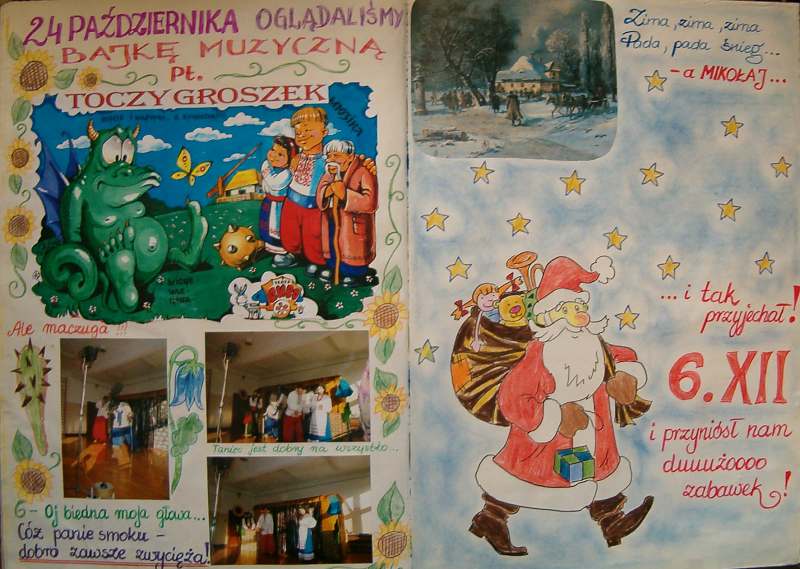 24 PAŹDZIERNIKA OGLĄDALIŚMY
BAJKĘ MUZYCZNĄ
Pt.
TOCZYGROSZEK
Ale maczuga !!!
Taniec jest dobry na wszystko...
6 - Oj biedna moja głowa...
Cóż panie smoku -
dobro zawsze zwycięża!
Zima, zima, zima
Pada, pada śnieg...
- a MIKOŁAJ...
... i tak
przyjechał!
6. XII
i przyniósł nam
duuużoooo
zabawek!